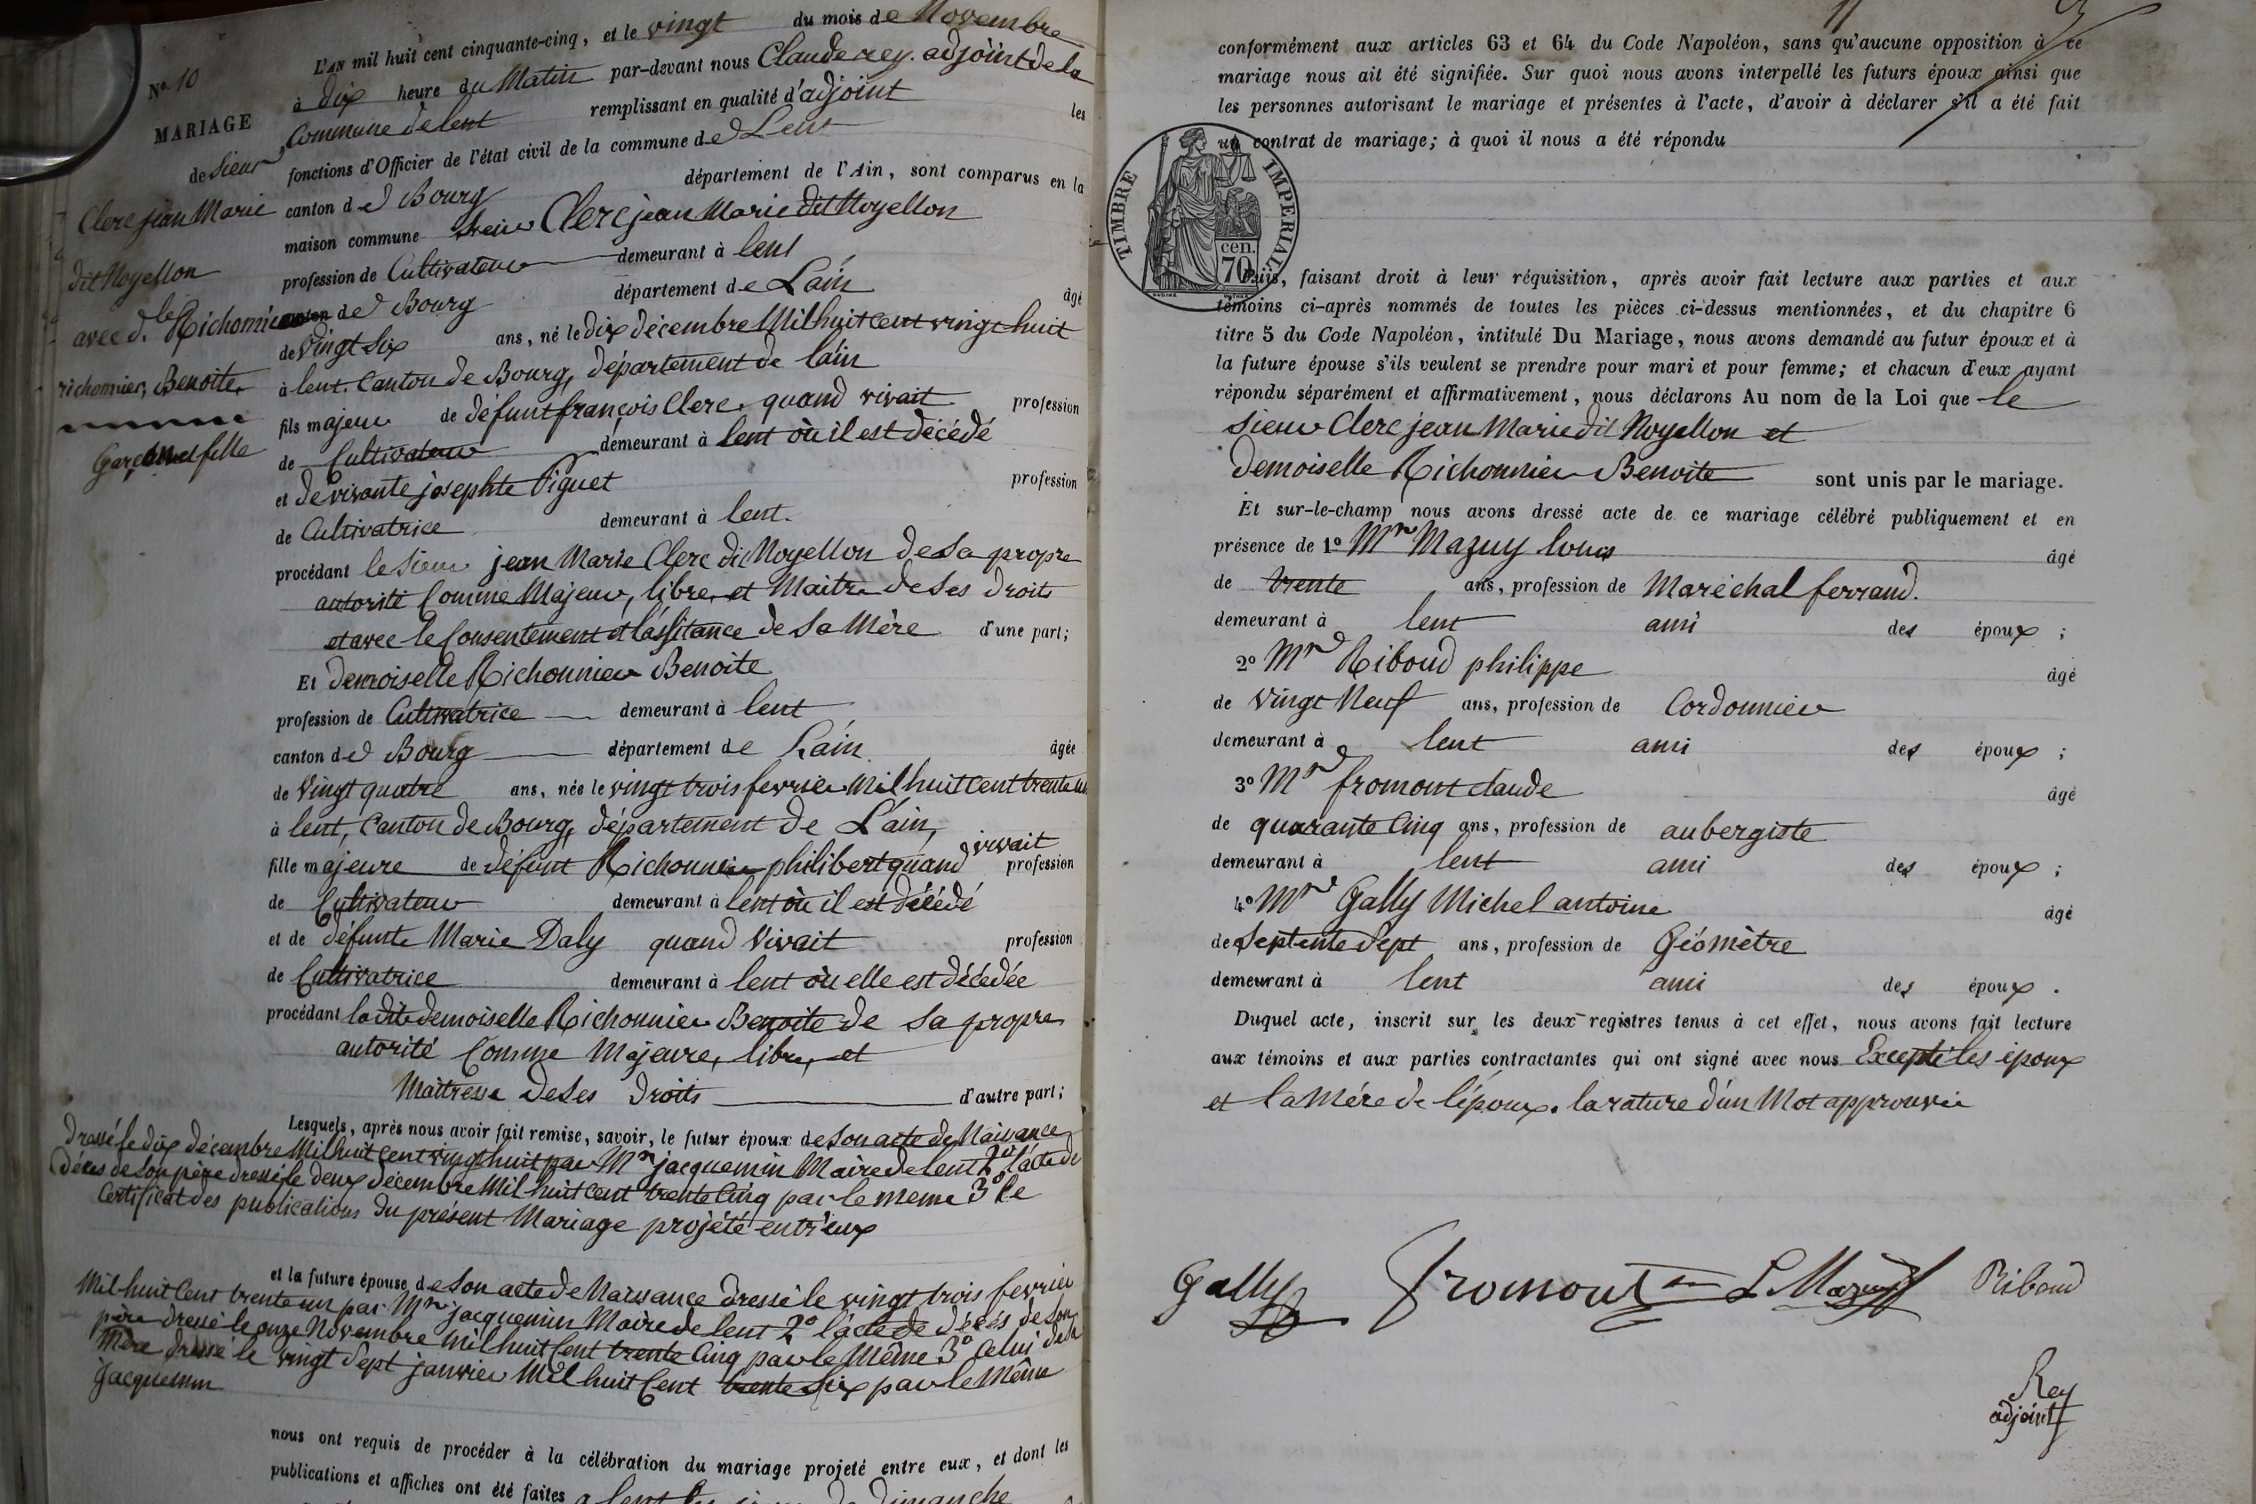 No 10
MARIAGE
de Sieur
Clerc jean Marie
dit Noyellon
avec d.lle Richonnier
richonnier, Benoite
Garçon et fille
L'AN mil huit cent cinquante-cinq, et le vingt du mois de Novembre
à dix heure du Matin par-devant nous Claude rey. adjoint de la
Commune de lent remplissant en qualité d'adjoint les
fonctions d'Officier de l'état civil de la commune de Lent
canton de Bourg département de l'Ain, sont comparus en la
maison commune Sieur Clerc jean Marie dit Noyellon
profession de Cultivateur demeurant à lent
canton de Bourg département de L'ain âgé
de vingt six ans, né le dix décembre Mil huit cent vingt huit
à lent. Canton de Bourg, département de l'ain
fils majeur de défunt françois Clerc, quand vivait profession
de Cultivateur demeurant à lent où il est décédé
et de vivante josephte Piguet profession
de Cultivatrice demeurant à lent.
procédant le sieur jean Marie Clerc dit Noyellon de sa propre
autorité Comme Majeur, libre, et Maitre de ses droits
et avec le Consentement et l'assitance de sa Mère d'une part;
Et demoiselle Richonnier Benoite
profession de Cultivatrice demeurant à lent
canton de Bourg département de L'ain âgée
de Vingt quatre ans, née le vingt trois fevrier Mil huit cent trente un
à lent, Canton de Bourg, département de L'ain,
fille majeure de défunt Richonnier philibert quand vivait profession
de Cultivateur demeurant à lent où il est décédé
et de défunte Marie Daly quand Vivait profession
de Cultivatrice demeurant à lent où elle est décédée
procédant la dite demoiselle Richonnier Benoite de sa propre
autorité Comme Majeure, libre, et
Maitresse de ses droits d'autre part;
Lesquels, après nous avoir fait remise, savoir, le futur époux de son acte de Naissance
dressé le dix décembre Mil huit cent vingt huit par Mr jacquemin Maire de lent 2o l'acte de
décés de son père dressé le deux décembre Mil huit cent trente cinq par le meme 3o le
Certificat des publications du présent Mariage projété entr'eux
et la future épouse de son acte de Naissance dressé le vingt trois fevrier
Mil huit Cent trente un par Mr jacquemin Maire de lent 2o l'acte de décés de son
père dressé le onze Novembre Mil huit Cent trente Cinq par le Même 3o Celui de sa
Mère dressé le vingt sept janvier Mil huit Cent trente six par le Même
Jacquemin
nous ont requis de procéder à la célébration du mariage projeté entre eux, et dont les
publications et affiches ont été faites a lent les jours de dimanche
conformément aux articles 63 et 64 du Code Napoléon, sans qu'aucune opposition à ce
mariage nous ait été signifiée. Sur quoi nous avons interpellé les futurs époux ainsi que
les personnes autorisant le mariage et présentes à l'acte, d'avoir à déclarer s'il a été fait
un contrat de mariage; à quoi il nous a été répondu
TIMBRE IMPERIAL
cen. 70
Puis, faisant droit à leur réquisition, après avoir fait lecture aux parties et aux
témoins ci-après nommés de toutes les pièces ci-dessus mentionnées, et du chapitre 6
titre 5 du Code Napoléon, intitulé Du Mariage, nous avons demandé au futur époux et à
la future épouse s'ils veulent se prendre pour mari et pour femme; et chacun d'eux ayant
répondu séparément et affirmativement, nous déclarons Au nom de la Loi que le
Sieur Clerc jean Marie dit Noyellon et
demoiselle Richonnier Benoite sont unis par le mariage.
Et sur-le-champ nous avons dressé acte de ce mariage célébré publiquement et en
présence de 1o Mr Mazuy louis âgé
de trente ans, profession de Maréchal ferrand.
demeurant à lent ami des époux ;
2o Mr Riboud philippe âgé
de vingt Neuf ans, profession de Cordonnier
demeurant à lent ami des époux ;
3o Mr fromont claude âgé
de quarante Cinq ans, profession de aubergiste
demeurant à lent ami des époux ;
4o Mr Gally Michel antoine âgé
de septente sept ans, profession de Géomètre
demeurant à lent ami des époux .
Duquel acte, inscrit sur les deux registres tenus à cet effet, nous avons fait lecture
aux témoins et aux parties contractantes qui ont signé avec nous Excepté les époux
et la Mére de l'époux. la rature d'un Mot approuvée
Gally Fromont L Mazuy Riboud
Rey
adjoint